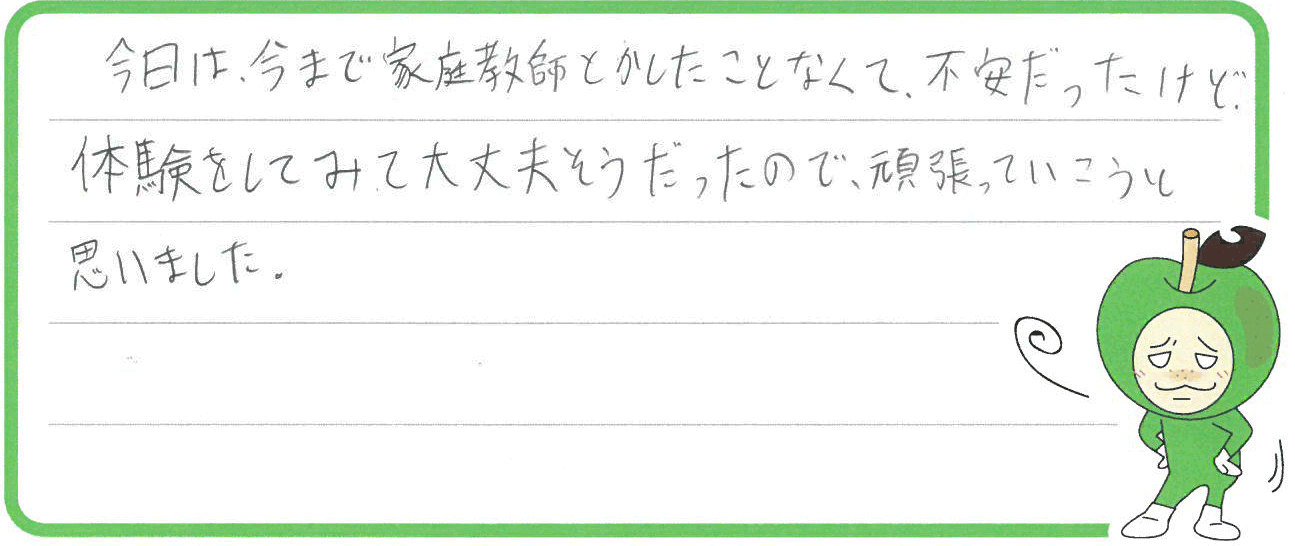 今日は、今まで家庭教師とかしたことなくて、不安だったけど、
体験をしてみて大丈夫そうだったので、頑張っていこうと
思いました。